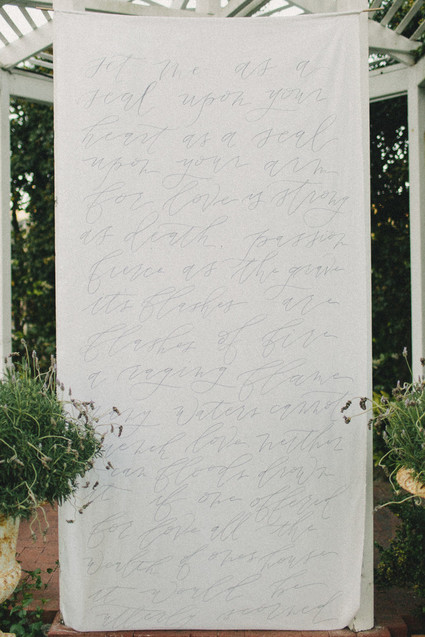 set me as a
seal upon your
heart as a seal
upon your arm
for love is strong
as death, passion
fierce as the grave
its flashes are
flashes of fire
a raging flame
many waters cannot
quench love, neither
can floods drown
it if one offered
for love all the
wealth of ones house
it would be
utterly scorned